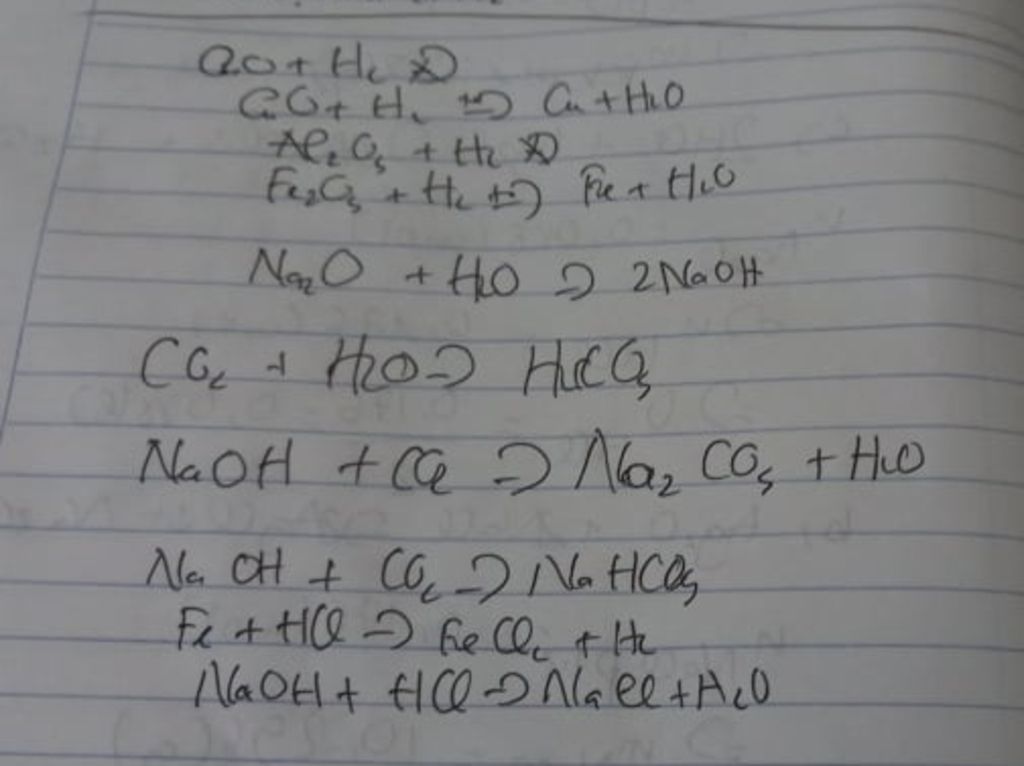 CaO + H₂ ⇏
CuO + H₂ → Cu + H₂O
Al₂O₃ + H₂ ⇏
Fe₂O₃ + H₂ → Fe + H₂O
Na₂O + H₂O → 2NaOH
CO₂ + H₂O → H₂CO₃
NaOH + CO₂ → Na₂CO₃ + H₂O
NaOH + CO₂ → NaHCO₃
Fe + HCl → FeCl₂ + H₂
NaOH + HCl → NaCl + H₂O